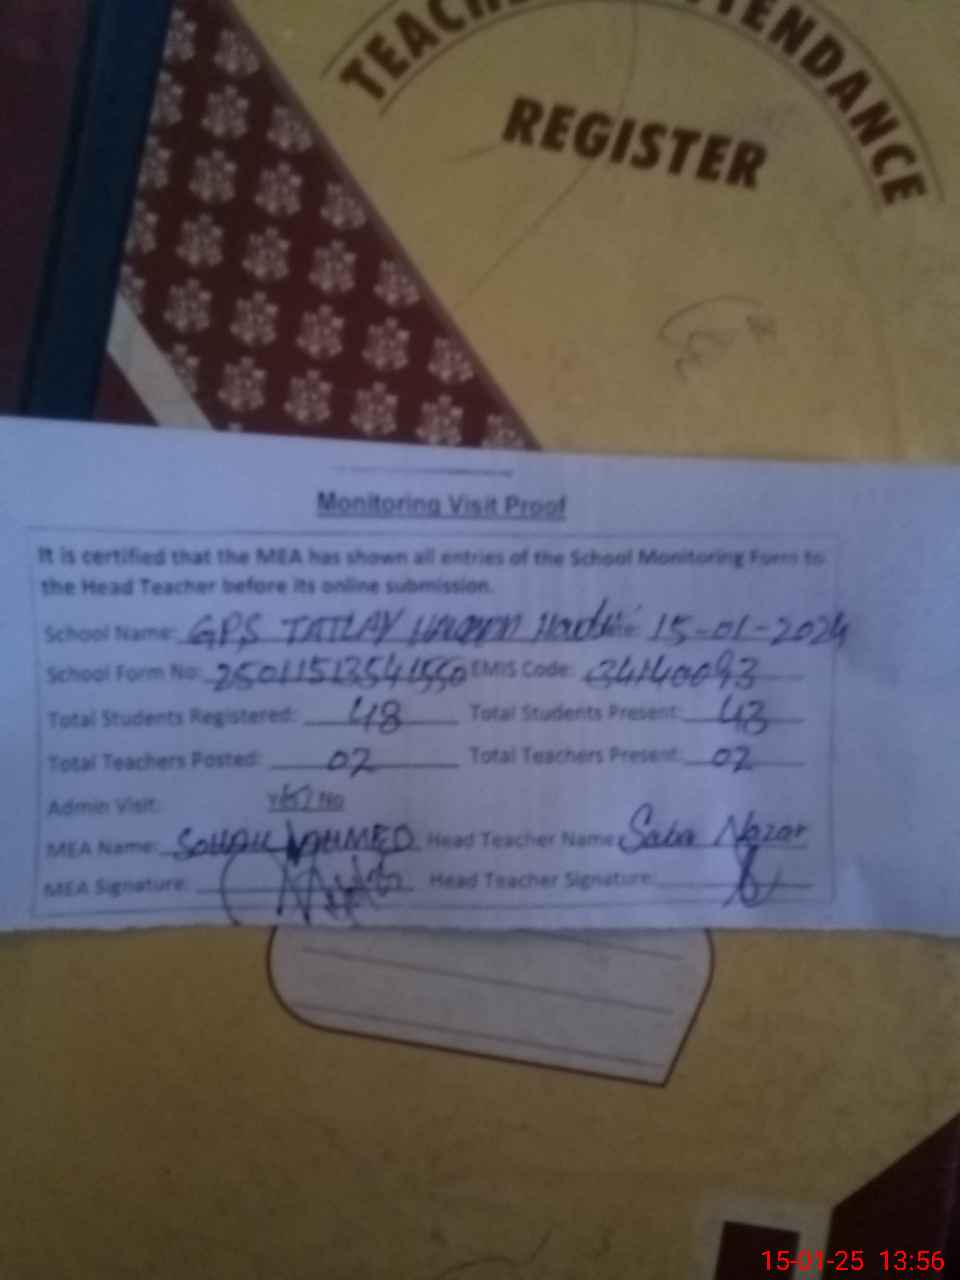 TEACHER ATTENDANCE
REGISTER
Monitoring Visit Proof
It is certified that the MEA has shown all entries of the School Monitoring Form to
the Head Teacher before its online submission.
School Name: GPS TATLAY 15-01-2024
School Form No: 25011513541550 EMIS Code: 34140093
Total Students Registered: 48 Total Students Present: 43
Total Teachers Posted: 02 Total Teachers Present: 02
Admin Visit: Yes/No
MEA Name: SOHAIL AHMED Head Teacher Name: Saba Nazar
MEA Signature: Head Teacher Signature:
15-01-25 13:56